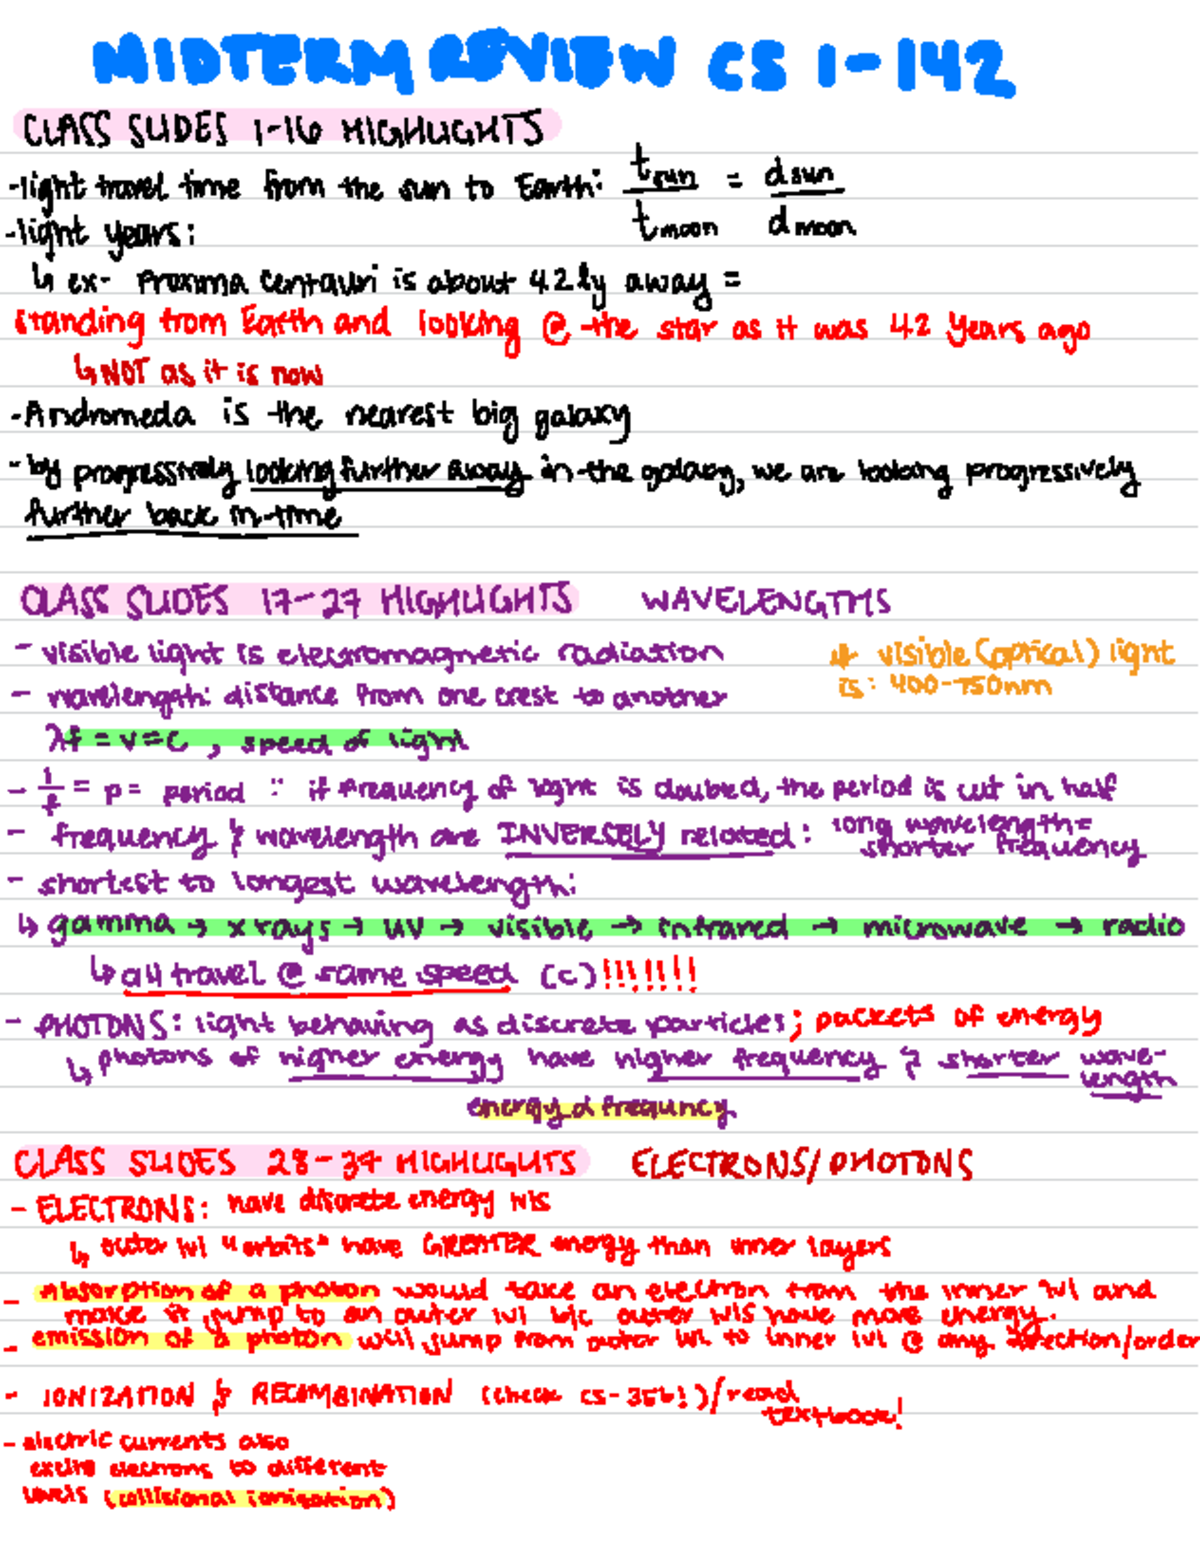 MIDTERM REVIEW CS 1-142
CLASS SLIDES 1-16 HIGHLIGHTS
-light travel time from the sun to Earth: t sun / t moon = d sun / d moon
-light years:
↳ ex- Proxima Centauri is about 42 ly away =
standing from Earth and looking @ the star as it was 42 years ago
↳NOT as it is now
-Andromeda is the nearest big galaxy
-by progressively looking further away in the galaxy, we are looking progressively
further back in time
CLASS SLIDES 17-27 HIGHLIGHTS WAVELENGTHS
- visible light is electromagnetic radiation
* visible (optical) light
is: 400-750nm
- wavelength: distance from one crest to another
λf = v = c , speed of light
- 1/f = p = period ∵ if frequency of light is doubled, the period is cut in half
- frequency & wavelength are INVERSELY related: long wavelength =
shorter frequency
- shortest to longest wavelength:
↳ gamma → x rays → UV → visible → infrared → microwave → radio
↳ all travel @ same speed (c)!!!!!!!
- PHOTONS: light behaving as discrete particles; packets of energy
↳ photons of higher energy have higher frequency & shorter wave-
length
energy α frequncy
CLASS SLIDES 28-37 HIGHLIGHTS ELECTRONS/PHOTONS
- ELECTRONS: have discrete energy lvls
↳ outer lvl "orbits" have GREATER energy than inner layers
- Absorption of a photon would take an electron from the inner lvl and
make it jump to an outer lvl b/c outer lvls have more energy.
- emission of a photon will jump from outer lvl to inner lvl @ any direction/order
- IONIZATION & RECOMBINATION (check CS-35b!)/read
textbook!
- electric currents also
excite electrons to different
levels (collisional ionization)